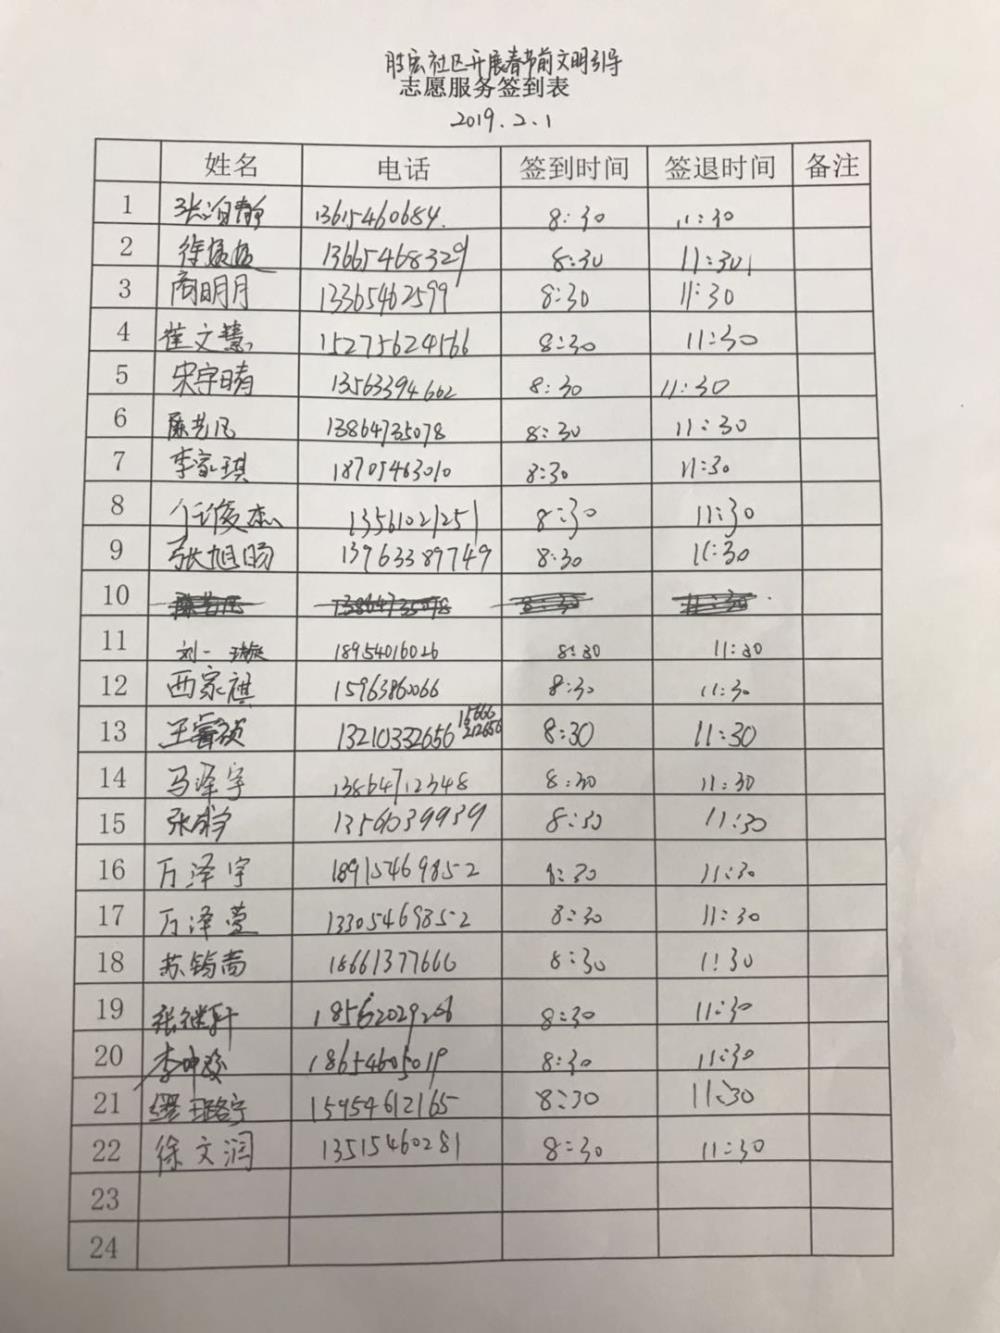 胜宏社区开展春节前文明引导
志愿服务签到表
2019.2.1
姓名 电话 签到时间 签退时间 备注
1 13615460684. 8:30 11:30
2 徐媛媛 13665468329 8:30 11:30
3 商明月 13365462599 8:30 11:30
4 崔文慧 15275624566 8:30 11:30
5 宋宇晴 13563394602 8:30 11:30
6 陈艺凡 13864735078 8:30 11:30
7 李家琪 18705463010 8:30 11:30
8 任俊杰 13561021251 8:30 11:30
9 张旭旸 13963389749 8:30 11:30
10 13864735078 8:30 11:30
11 刘一璇 18954016026 8:30 11:30
12 西家祺 15963860066 8:30 11:30
13 13210332656 8:30 11:30
14 马泽宇 13864712348 8:30 11:30
15 13561039939 8:30 11:30
16 万泽宇 18915469852 8:30 11:30
17 万泽萱 13305469852 8:30 11:30
18 18661377666 8:30 11:30
19 张继轩 8:30 11:30
20 18654605019 8:30 11:30
21 15954612165 8:30 11:30
22 徐文润 13515460281 8:30 11:30
23
24